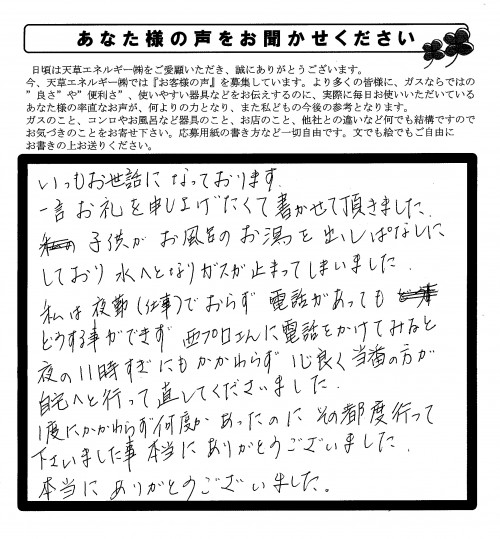 あなた様の声をお聞かせください
日頃は天草エネルギー㈱をご愛顧いただき、誠にありがとうございます。
今、天草エネルギー㈱では『お客様の声』を募集しています。より多くの皆様に、ガスならではの
”良さ”や”便利さ”、使いやすい器具などをお伝えするのに、実際に毎日お使いいただいている
あなた様の率直なお声が、何よりの力となり、また私どもの今後の参考となります。
ガスのこと、コンロやお風呂など器具のこと、お店のこと、他社との違いなど何でも結構ですので
お気づきのことをお寄せ下さい。応募用紙の書き方など一切自由です。文でも絵でもご自由に
お書きの上お送りください。
いつもお世話になっております.
一言お礼を申し上げたくて書かせて頂きました.
子供がお風呂のお湯を出しぱなしに
しており水へとなりガスが止まってしまいました.
私は夜勤(仕事)でおらず電話があっても
どうする事ができず 西プロさんに電話をかけてみると
夜の11時すぎにもかかわらず 心良く当番の方が
自宅へと行って直してくださいました.
1度にかかわらず何度か あったのに その都度行って
下さいました事 本当に ありがとうございました.
本当に ありがとうございました。